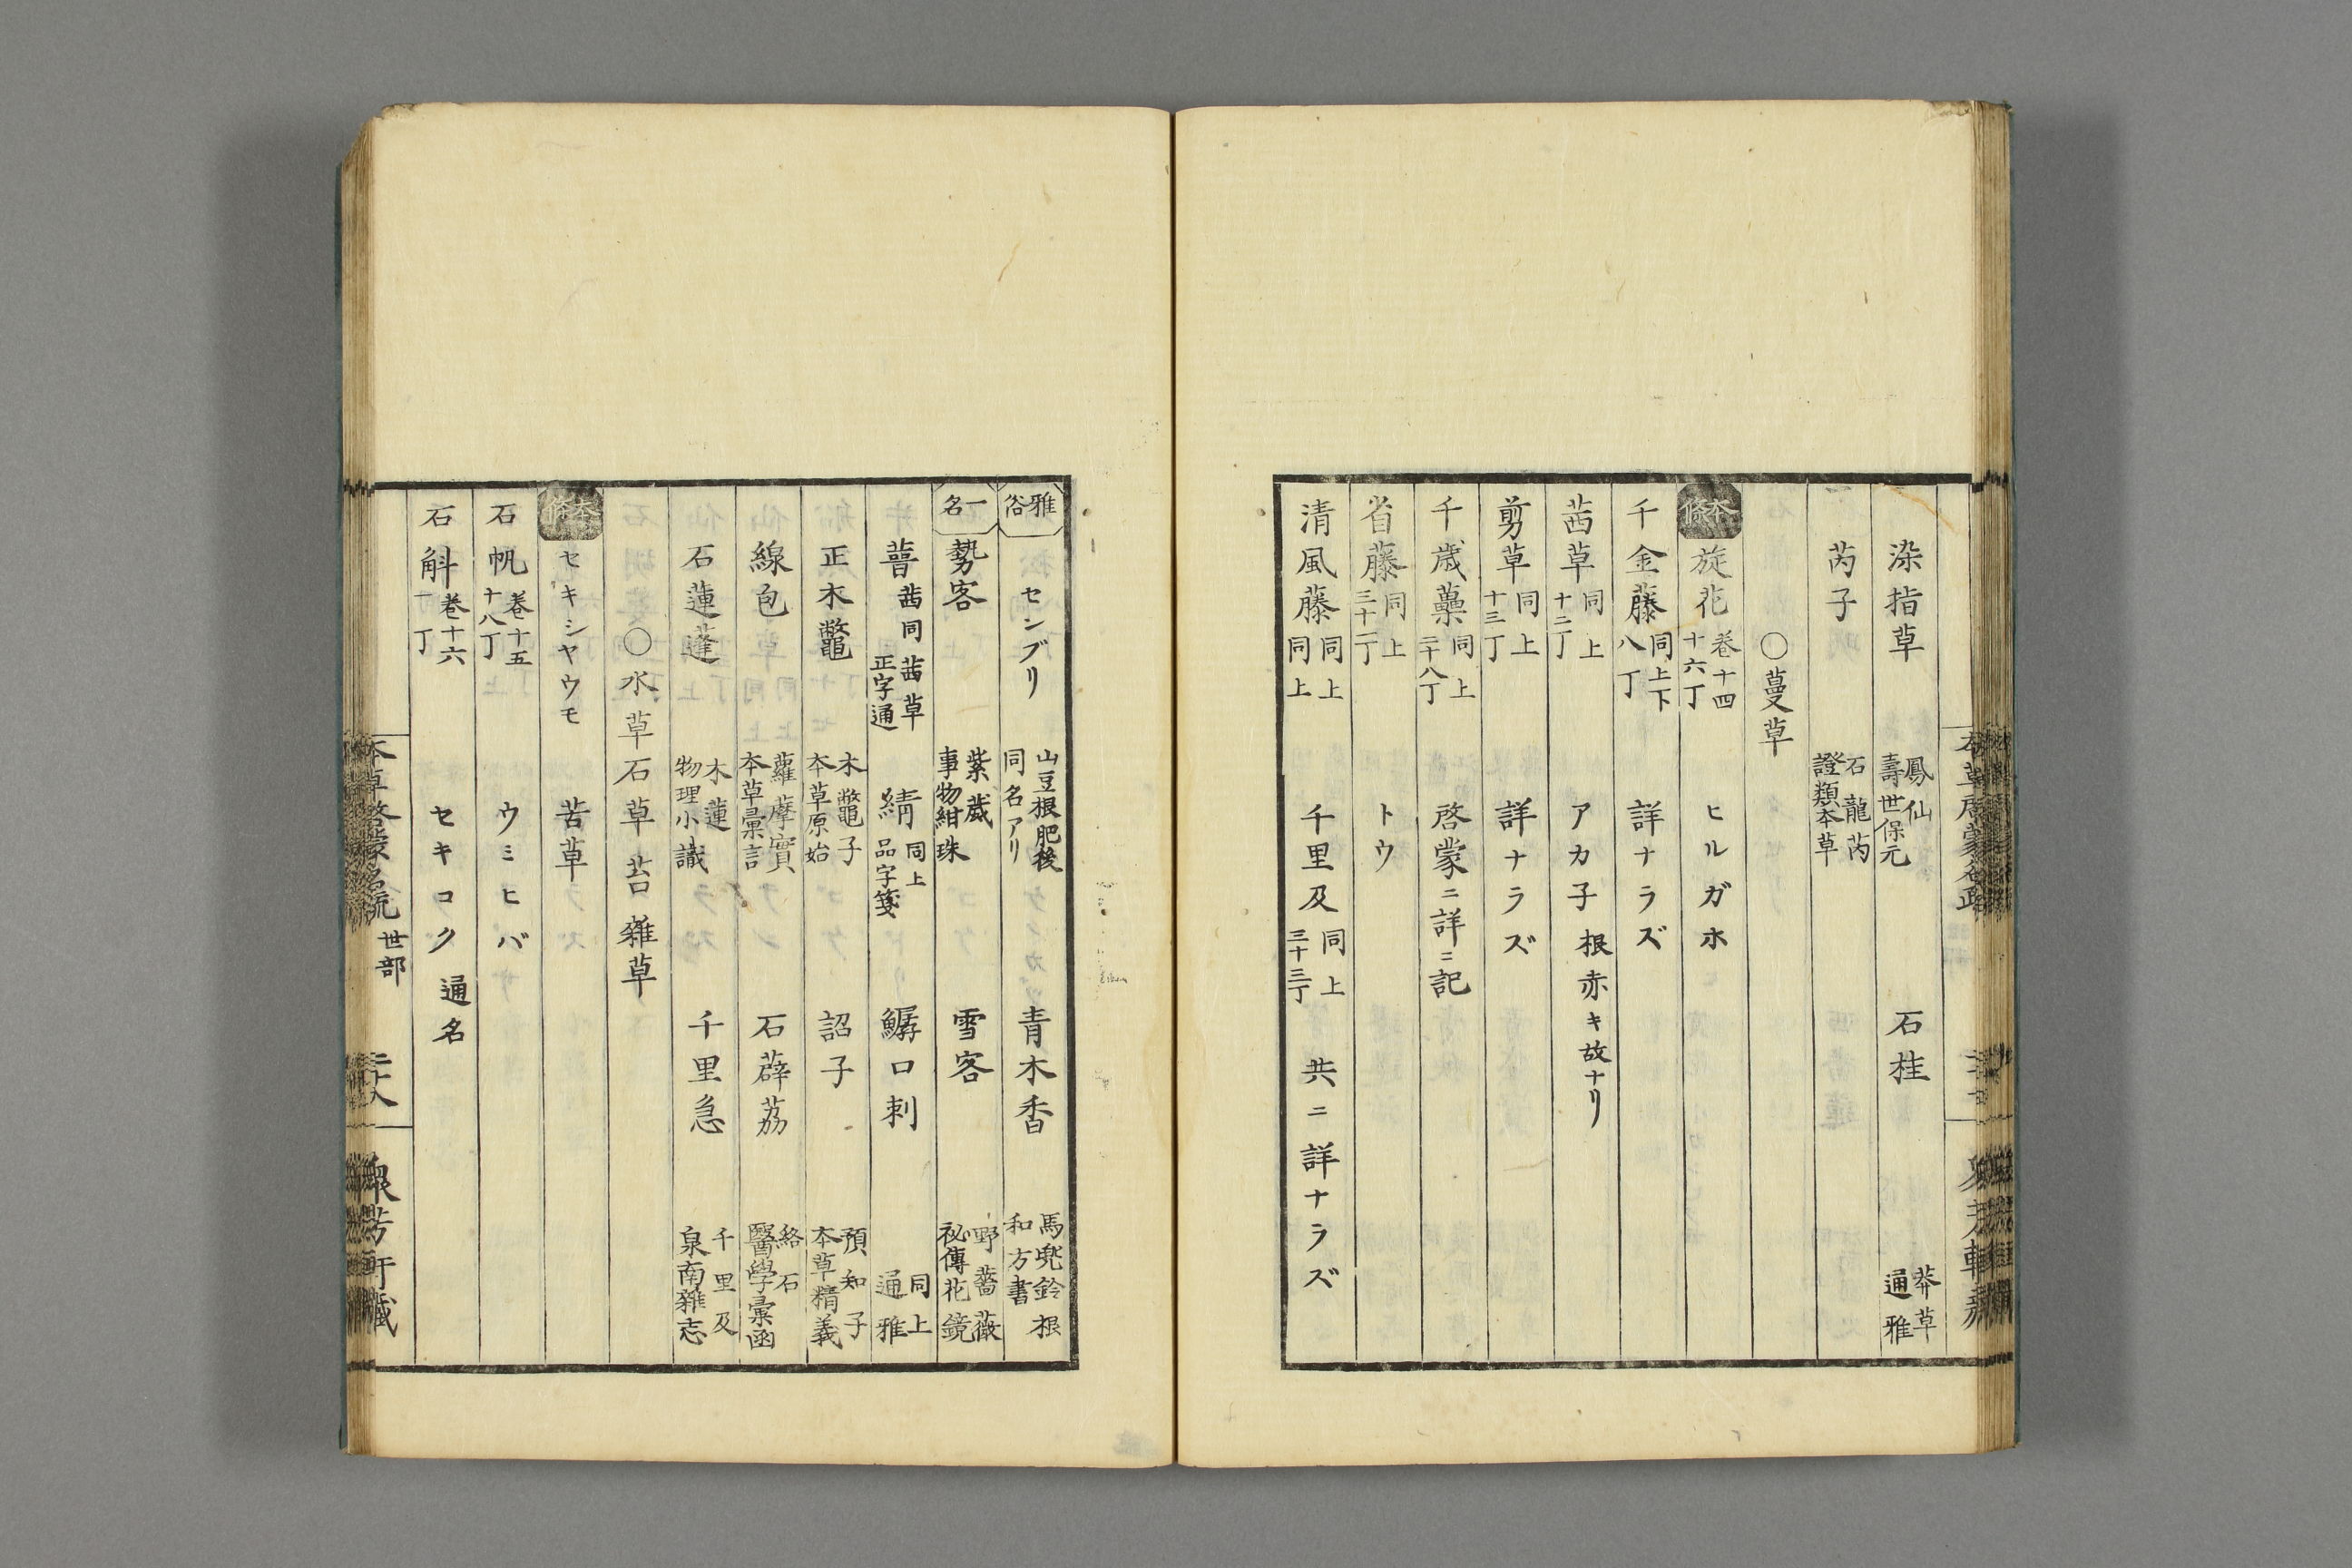 染指草 鳳仙 壽世保元 石桂 莽草 通雅
芮子 石龍芮 證類本草
〇蔓草
本條 旋花 巻十四 十六丁 ヒルガホ
千金藤 同上下 八丁 詳ナラズ
茜草 同上 十二丁 アカ子 根赤キ故ナリ
剪草 同上 十三丁 詳ナラズ
千歳蘽 同上 二十八丁 啓蒙ニ詳ニ記
省藤 同上 三十二丁 トウ
清風藤 同上 同上 千里及 同上 三十三丁 共ニ詳ナラズ
雅俗 センブリ 山豆根肥後 同名アリ 青木香 馬兜鈴根 和方書
一名 勢客 紫葳 事物紺珠 雪客 野薔薇 祕傳花鏡
蒨 茜同 茜草 正字通 綪 同上 品字箋 鱘口刺 同上 通雅
正木鼈 木鼈子 本草原始 詔子 預知子 本草精義
線包 蘿藦實 本草彙言 石薜荔 絡石 醫學彙函
石蓮蓬 木蓮 物理小識 千里急 千里及 泉南雜志
〇水草石草 苔 雜草
本條 セキシヤウモ 苦草
石帆 巻十五 十八丁 ウミヒバ
石斛 巻十六 一丁 セキコク 通名
本草啓蒙名疏 世部